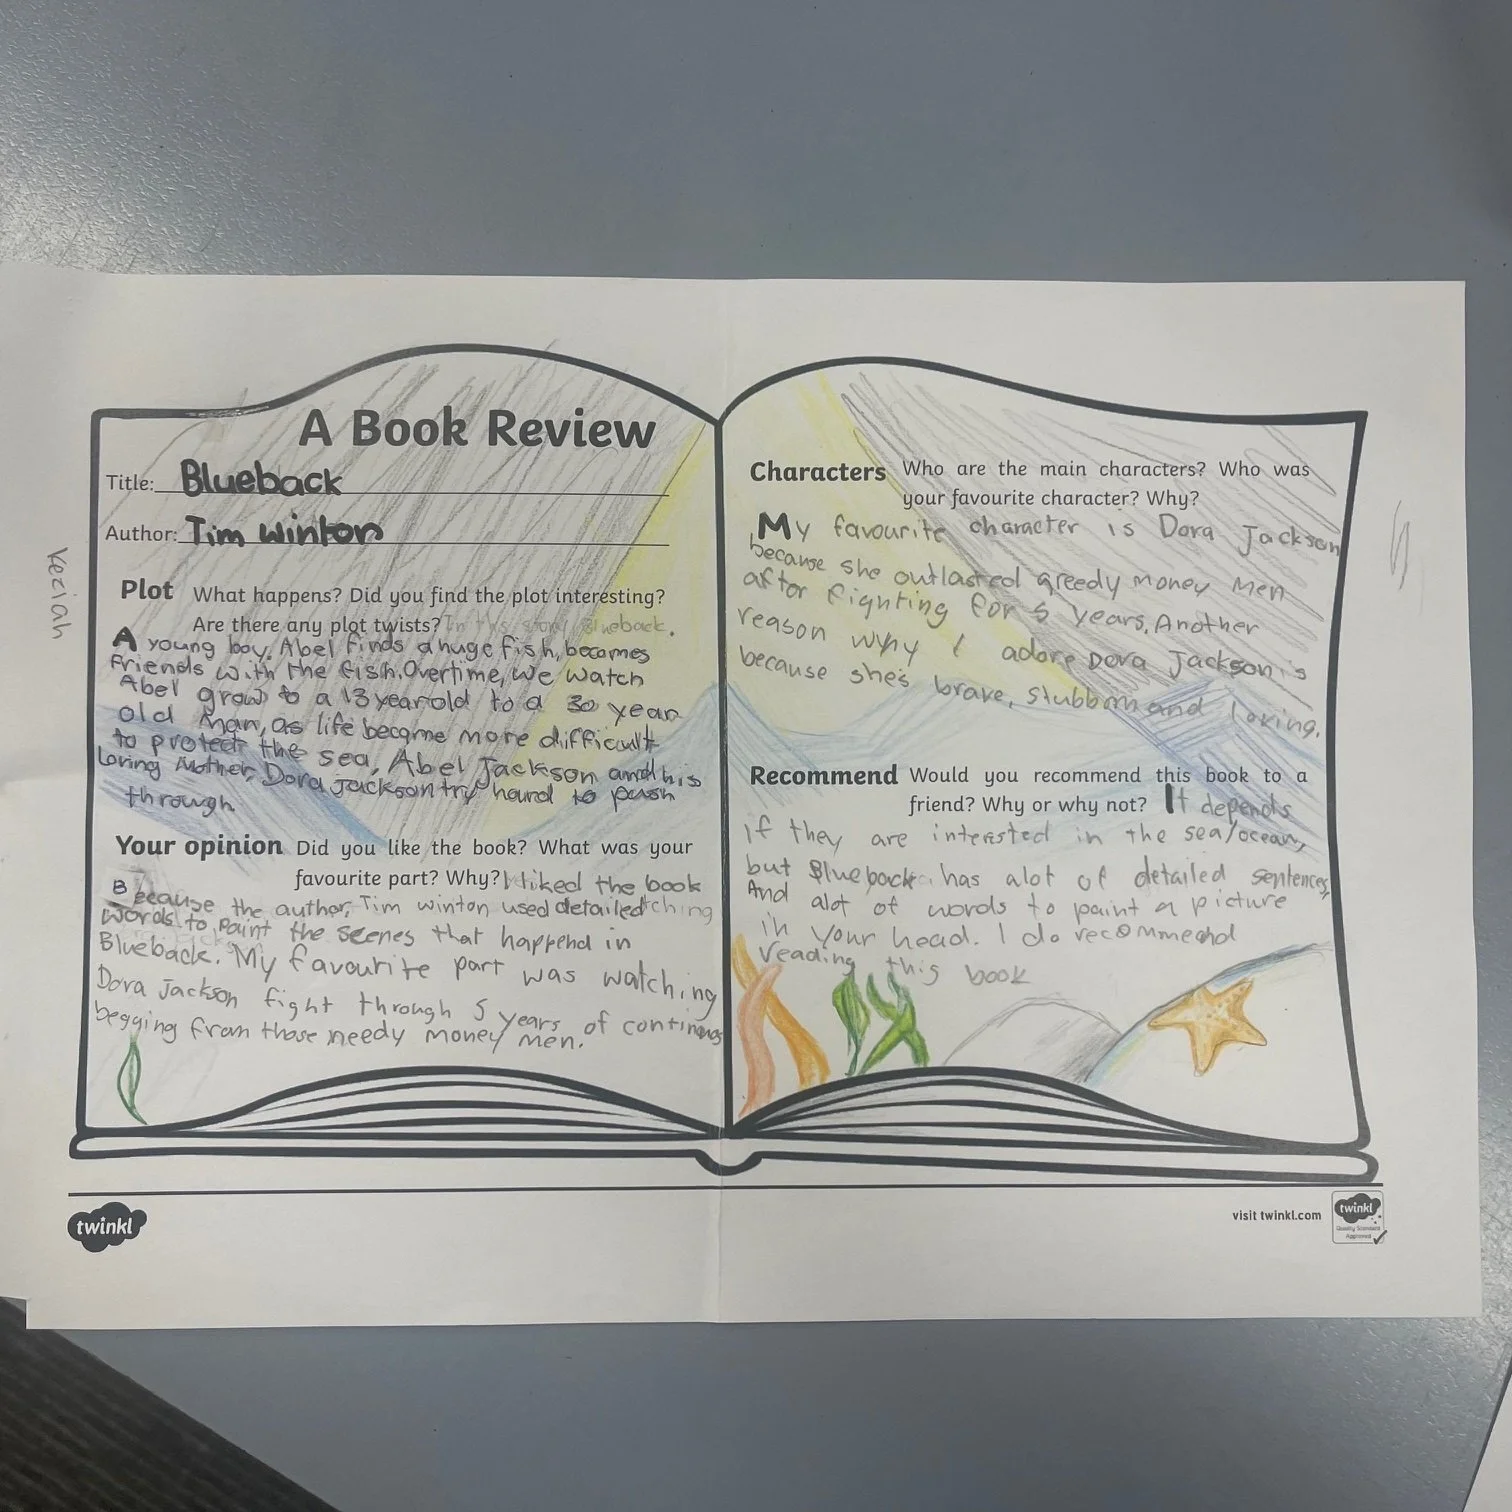 A Book Review
Title: Blueback
Author: Tim Winton
Plot What happens? Did you find the plot interesting?
Are there any plot twists? In this story Blueback.
A young boy, Abel finds a huge fish, becomes
friends with the fish. Overtime, we watch
Abel grow to a 13 year old to a 30 year
old man, as life became more difficult
to protect the sea, Abel Jackson and his
loving Mother, Dora Jackson try hard to push
through
Your opinion Did you like the book? What was your
favourite part? Why? I liked the book
Because the author, Tim Winton used detailed
words to paint the scenes that happend in
Blueback. My favourite part was watching
Dora Jackson fight through 5 years of continuos
begging from those needy money men.
Keziah
Characters Who are the main characters? Who was
your favourite character? Why?
My favourite character is Dora Jackson
because she outlasted greedy money men
after fighting for 5 years. Another
reason why I adore Dora Jackson is
because she's brave, stubborn and loving.
Recommend Would you recommend this book to a
friend? Why or why not? It depends
if they are interested in the sea/ocean,
but Blueback has alot of detailed sentences,
And alot of words to paint a picture
in your head. I do recommend
reading this book
twinkl
visit twinkl.com
twinkl
Quality Standard
Approved